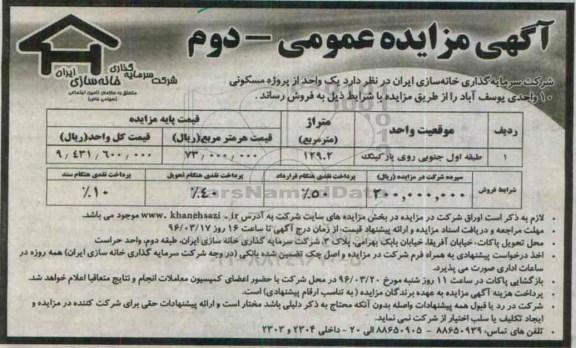 آگهی مزایده عمومی - دوم
شرکت سرمایه گذاری
خانه سازی ایران
متعلق به سازمان تامین اجتماعی
(سهامی خاص)
شرکت سرمایه گذاری خانه سازی ایران در نظر دارد یک واحد از پروژه مسکونی
۱۰ واحدی یوسف آباد را از طریق مزایده با شرایط ذیل به فروش رساند.
ردیف موقعیت واحد متراژ (مترمربع) قیمت پایه مزایده
قیمت هر متر مربع (ریال) قیمت کل واحد (ریال)
۱ طبقه اول جنوبی روی پارکینگ ۱۲۹.۲ ۷۳,۰۰۰,۰۰۰ ۹,۴۳۱,۶۰۰,۰۰۰
شرایط فروش سپرده شرکت در مزایده (ریال) پرداخت نقدی هنگام قرارداد پرداخت نقدی هنگام تحویل پرداخت نقدی هنگام سند
۳۰۰,۰۰۰,۰۰۰ ٪۵۰ ٪۴۰ ٪۱۰
لازم به ذکر است اوراق شرکت در مزایده در بخش مزایده های سایت شرکت به آدرس www.khanehsazi.ir موجود می باشد.
مهلت مراجعه و دریافت اسناد مزایده و ارائه پیشنهاد قیمت، از زمان درج آگهی تا ساعت ۱۶ روز ۹۶/۰۳/۱۷
محل تحویل پاکات، خیابان آفریقا، خیابان بابک بهرامی، پلاک ۳ شرکت سرمایه گذاری خانه سازی ایران، طبقه دوم، واحد حراست
اخذ درخواست پیشنهادی به همراه فرم شرکت در مزایده و اصل چک تضمین شده بانکی (در وجه شرکت سرمایه گذاری خانه سازی ایران) همه روزه در
ساعات اداری صورت می پذیرد.
بازگشایی پاکات در ساعت ۱۱ روز شنبه مورخ ۹۶/۰۳/۲۰ در محل شرکت با حضور اعضای کمیسیون معاملات انجام و نتایج متعاقبا اعلام خواهد شد.
پرداخت هزینه آگهی مزایده به عهده برندگان مزایده (به تناسب ارقام پیشنهادی) است.
شرکت در رد یا قبول همه پیشنهادات واصله بدون آنکه محتاج به ذکر دلیلی باشد مختار است و ارائه پیشنهادات حقی برای شرکت کننده در مزایده و
ایجاد تکلیف یا سلب اختیار از شرکت نمی نماید.
تلفن های تماس: ۸۸۶۵۰۹۳۹ - ۸۸۶۵۰۹۰۵ الی ۲۰ - داخلی ۲۳۰۴ و ۲۳۰۳